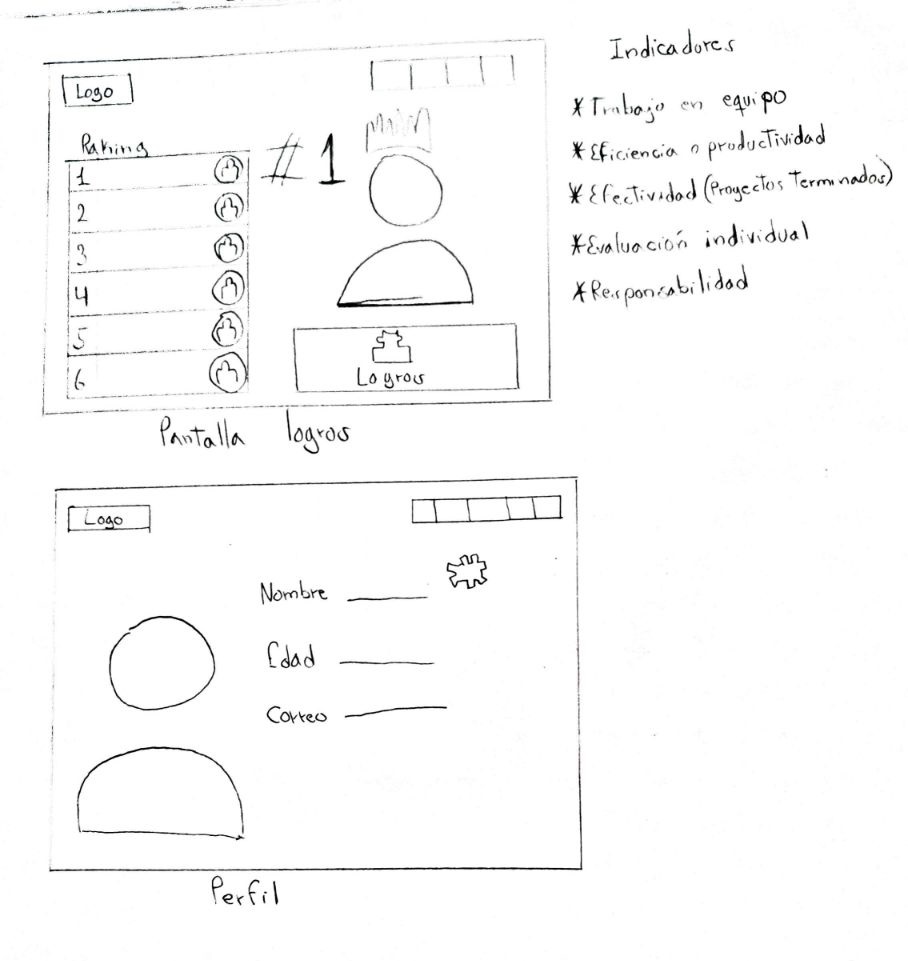 Logo
Raking
1
2
3
4
5
6
#1
Logros
Pantalla logros
Indicadores
* Trabajo en equipo
* Eficiencia o productividad
* Efectividad (Proyectos Terminados)
* Evaluación individual
* Responsabilidad
Logo
Nombre
Edad
Correo
Perfil